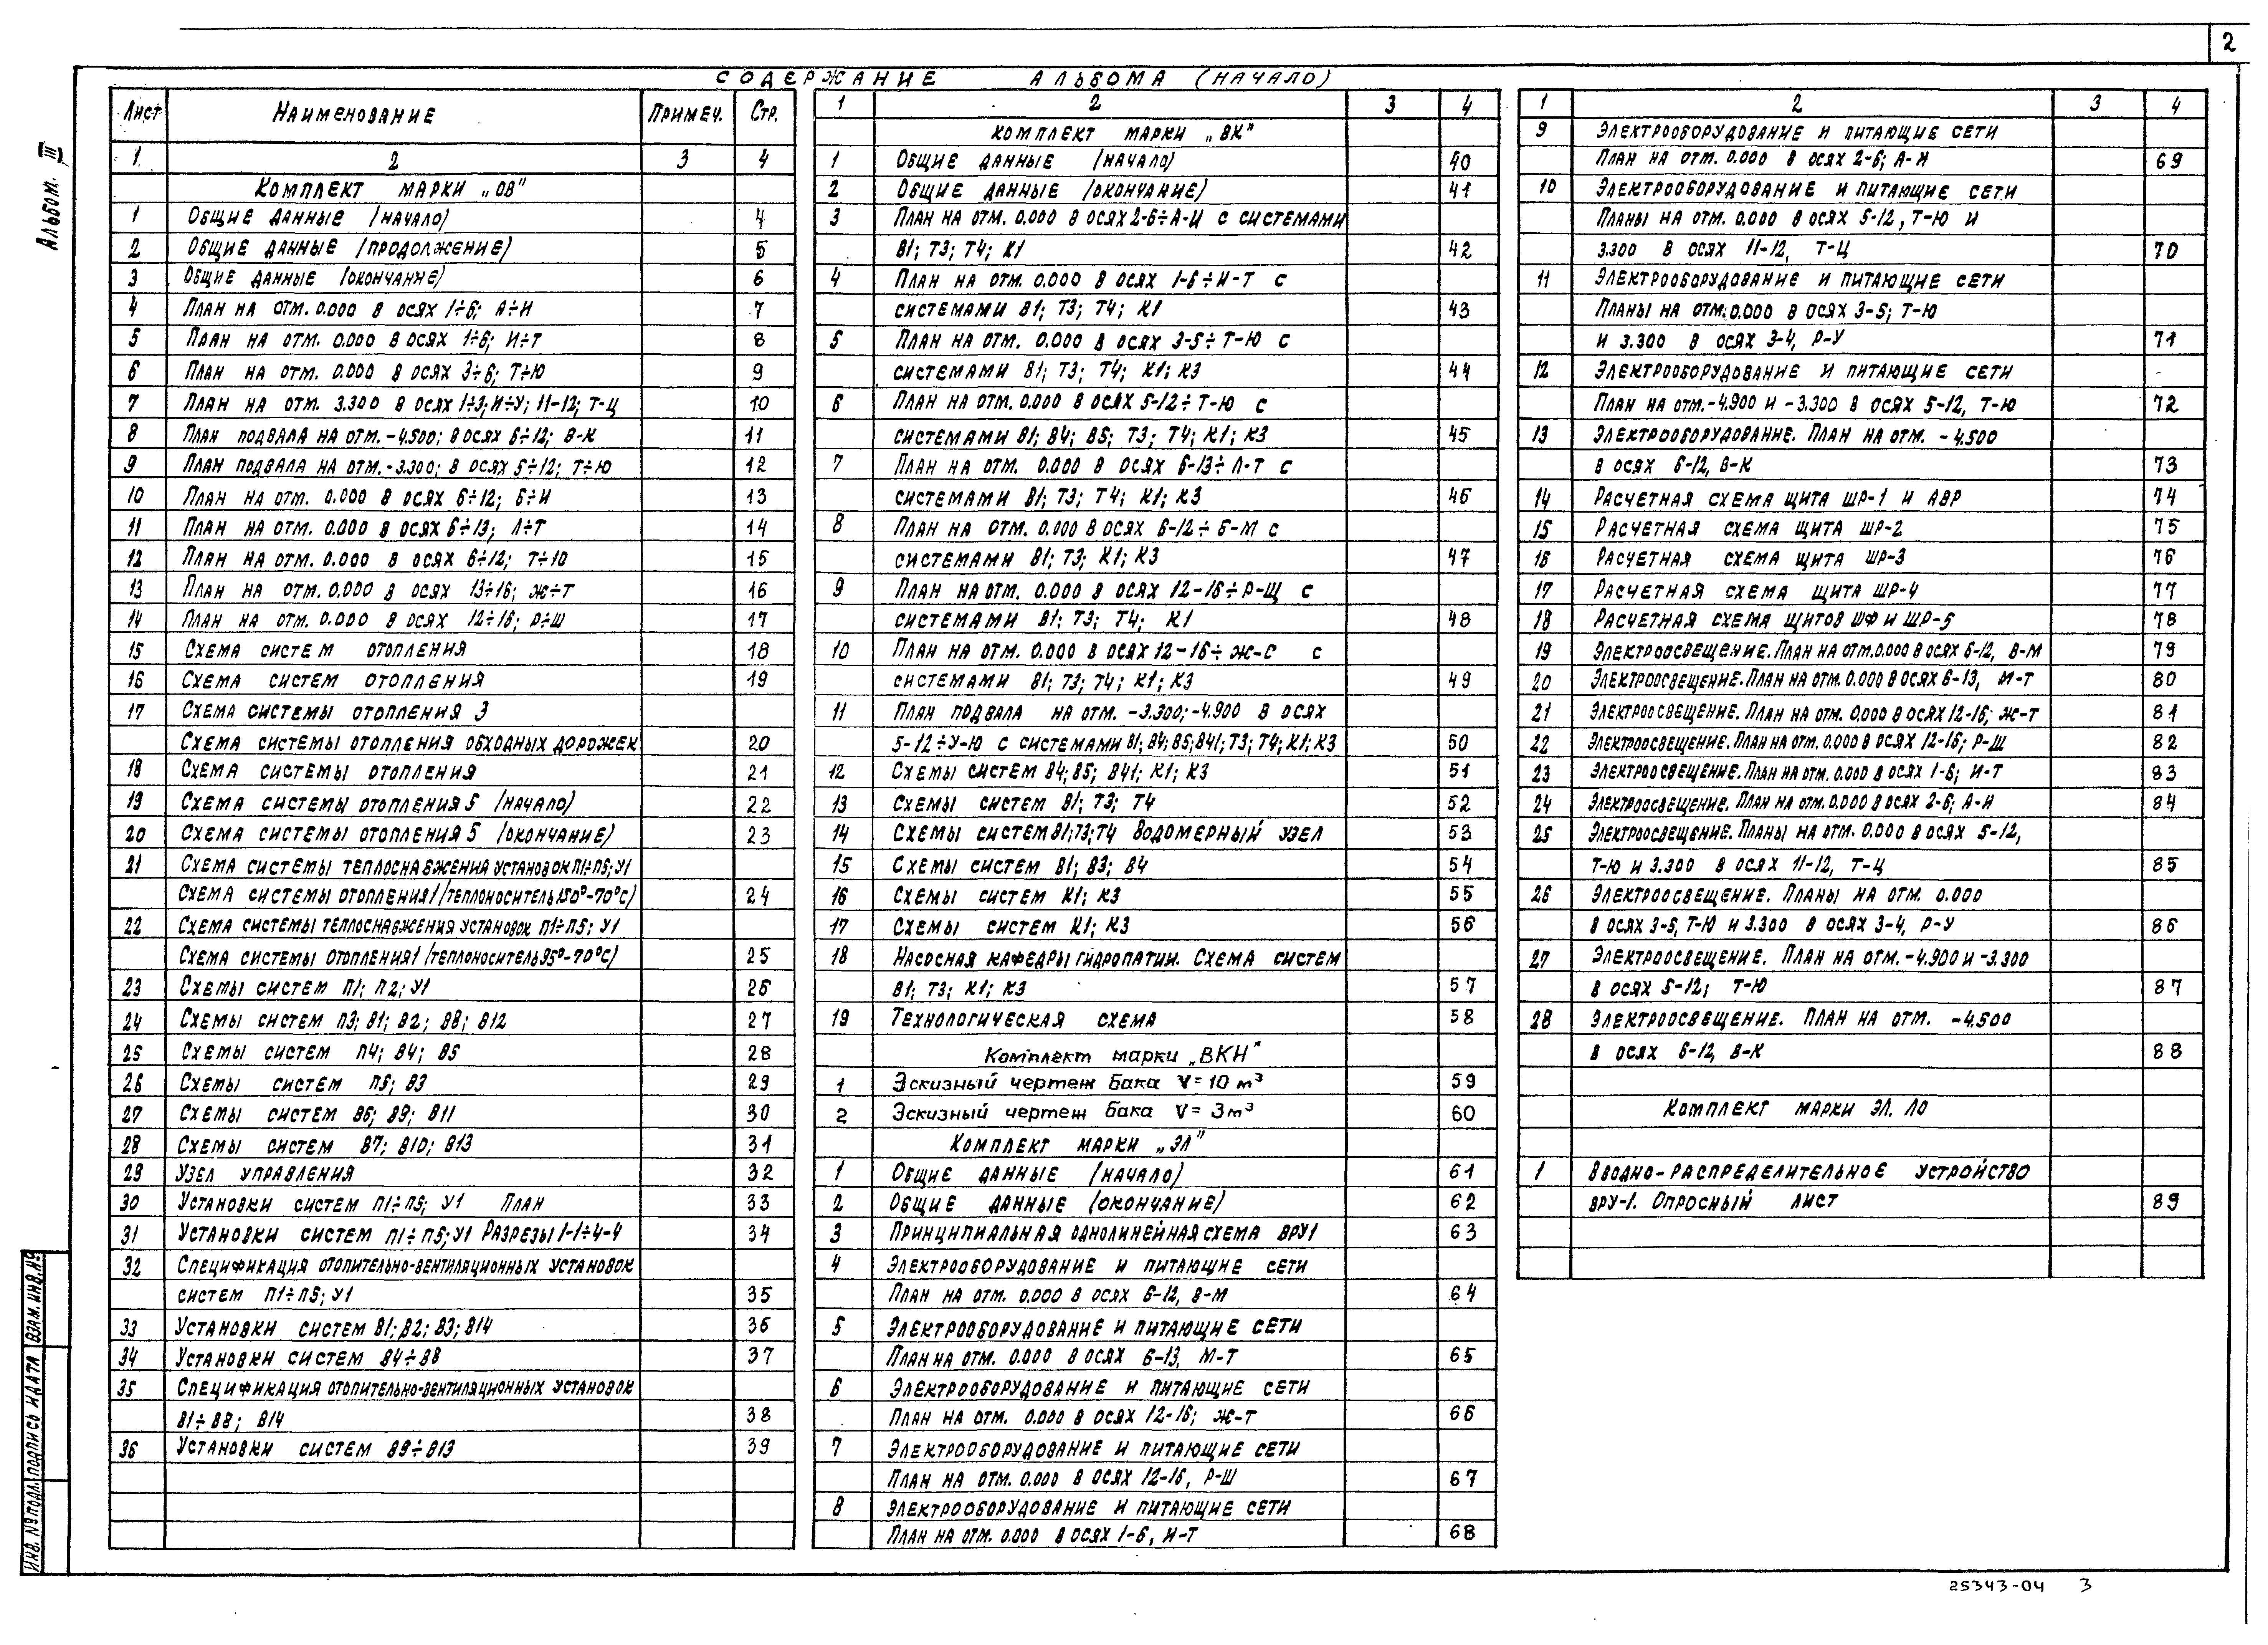 2
СОДЕРЖАНИЕ АЛЬБОМА (НАЧАЛО)
Альбом. III
Лист Наименование Примеч. Стр.
1 2 3 4
Комплект марки „ОВ"
1 Общие данные (начало) 4
2 Общие данные (продолжение) 5
3 Общие данные (окончание) 6
4 План на отм. 0.000 в осях 1÷6; А÷И 7
5 План на отм. 0.000 в осях 1÷6; И÷Т 8
6 План на отм. 0.000 в осях 3÷6; Т÷Ю 9
7 План на отм. 3.300 в осях 1÷3; И÷У; 11-12; Т-Ц 10
8 План подвала на отм. -4.500; в осях 6÷12; В-К 11
9 План подвала на отм. -3.300; в осях 5÷12; Т÷Ю 12
10 План на отм. 0.000 в осях 6÷12; Б÷И 13
11 План на отм. 0.000 в осях 6÷13; Л÷Т 14
12 План на отм. 0.000 в осях 6÷12; Т÷Ю 15
13 План на отм. 0.000 в осях 13÷16; Ж÷Т 16
14 План на отм. 0.000 в осях 12÷16; Р÷Ш 17
15 Схема систем отопления 18
16 Схема систем отопления 19
17 Схема системы отопления 3
Схема системы отопления обходных дорожек 20
18 Схема системы отопления 21
19 Схема системы отопления 5 (начало) 22
20 Схема системы отопления 5 (окончание) 23
21 Схема системы теплоснабжения установок П1÷П5; У1
Схема системы отопления 1 (теплоноситель 150°-70°С) 24
22 Схема системы теплоснабжения установок П1÷П5; У1
Схема системы отопления 1 (теплоноситель 95°-70°С) 25
23 Схемы систем П1; П2; У1 26
24 Схемы систем П3; В1; В2; В8; В12 27
25 Схемы систем П4; В4; В5 28
26 Схемы систем П5; В3 29
27 Схемы систем В6; В9; В11 30
28 Схемы систем В7; В10; В13 31
29 Узел управления 32
30 Установки систем П1÷П5; У1 План 33
31 Установки систем П1÷П5; У1 Разрезы 1-1÷4-4 34
32 Спецификация отопительно-вентиляционных установок
систем П1÷П5; У1 35
33 Установки систем В1; В2; В3; В14 36
34 Установки систем В4÷В8 37
35 Спецификация отопительно-вентиляционных установок
В1÷В8; В14 38
36 Установки систем В9÷В13 39
1 2 3 4
Комплект марки „ВК"
1 Общие данные (начало) 40
2 Общие данные (окончание) 41
3 План на отм. 0.000 в осях 2-6÷А-И с системами
В1; Т3; Т4; К1 42
4 План на отм. 0.000 в осях 1-6÷И-Т с
системами В1; Т3; Т4; К1 43
5 План на отм. 0.000 в осях 3-5÷Т-Ю с
системами В1; Т3; Т4; К1; К3 44
6 План на отм. 0.000 в осях 5-12÷Т-Ю с
системами В1; В4; В5; Т3; Т4; К1; К3 45
7 План на отм. 0.000 в осях 6-13÷Л-Т с
системами В1; Т3; Т4; К1; К3 46
8 План на отм. 0.000 в осях 6-12÷Б-М с
системами В1; Т3; К1; К3 47
9 План на отм. 0.000 в осях 12-16÷Р-Щ с
системами В1; Т3; Т4; К1 48
10 План на отм. 0.000 в осях 12-16÷Ж-С с
системами В1; Т3; Т4; К1; К3 49
11 План подвала на отм. -3.300; -4.900 в осях
5-12÷У-Ю с системами В1; В4; В5; В41; Т3; Т4; К1; К3 50
12 Схемы систем В4; В5; В41; К1; К3 51
13 Схемы систем В1; Т3; Т4 52
14 Схемы систем В1; Т3; Т4 Водомерный узел 53
15 Схемы систем В1; В3; В4 54
16 Схемы систем К1; К3 55
17 Схемы систем К1; К3 56
18 Насосная кафедры гидропатии. Схема систем
В1; Т3; К1; К3 57
19 Технологическая схема 58
Комплект марки „ВКН"
1 Эскизный чертеж бака V=10 м³ 59
2 Эскизный чертеж бака V=3м³ 60
Комплект марки „ЭЛ"
1 Общие данные (начало) 61
2 Общие данные (окончание) 62
3 Принципиальная однолинейная схема ВРУ1 63
4 Электрооборудование и питающие сети
План на отм. 0.000 в осях 6-12, В-М 64
5 Электрооборудование и питающие сети
План на отм. 0.000 в осях 6-13, М-Т 65
6 Электрооборудование и питающие сети
План на отм. 0.000 в осях 12-16; Ж-Т 66
7 Электрооборудование и питающие сети
План на отм. 0.000 в осях 12-16, Р-Ш 67
8 Электрооборудование и питающие сети
План на отм. 0.000 в осях 1-6, И-Т 68
1 2 3 4
9 Электрооборудование и питающие сети
План на отм. 0.000 в осях 2-6; А-И 69
10 Электрооборудование и питающие сети
Планы на отм. 0.000 в осях 5-12, Т-Ю и
3.300 в осях 11-12, Т-Ц 70
11 Электрооборудование и питающие сети
Планы на отм. 0.000 в осях 3-5; Т-Ю
и 3.300 в осях 3-4, Р-У 71
12 Электрооборудование и питающие сети
План на отм. -4.900 и -3.300 в осях 5-12, Т-Ю 72
13 Электрооборудование. План на отм. -4.500
в осях 6-12, В-К 73
14 Расчетная схема щита ШР-1 и АВР 74
15 Расчетная схема щита ШР-2 75
16 Расчетная схема щита ШР-3 76
17 Расчетная схема щита ШР-4 77
18 Расчетная схема щитов ШФ и ШР-5 78
19 Электроосвещение. План на отм. 0.000 в осях 6-12, В-М 79
20 Электроосвещение. План на отм. 0.000 в осях 6-13, М-Т 80
21 Электроосвещение. План на отм. 0.000 в осях 12-16; Ж-Т 81
22 Электроосвещение. План на отм. 0.000 в осях 12-16; Р-Ш 82
23 Электроосвещение. План на отм. 0.000 в осях 1-6; И-Т 83
24 Электроосвещение. План на отм. 0.000 в осях 2-6; А-И 84
25 Электроосвещение. Планы на отм. 0.000 в осях 5-12,
Т-Ю и 3.300 в осях 11-12, Т-Ц 85
26 Электроосвещение. Планы на отм. 0.000
в осях 3-5, Т-Ю и 3.300 в осях 3-4, Р-У 86
27 Электроосвещение. План на отм. -4.900 и -3.300
в осях 5-12; Т-Ю 87
28 Электроосвещение. План на отм. -4.500
в осях 6-12, В-К 88
Комплект марки ЭЛ. ЛО
1 Вводно-распределительное устройство
ВРУ-1. Опросный лист 89
Инв. № подл. Подпись и дата Взам. инв. №
25343-04 3